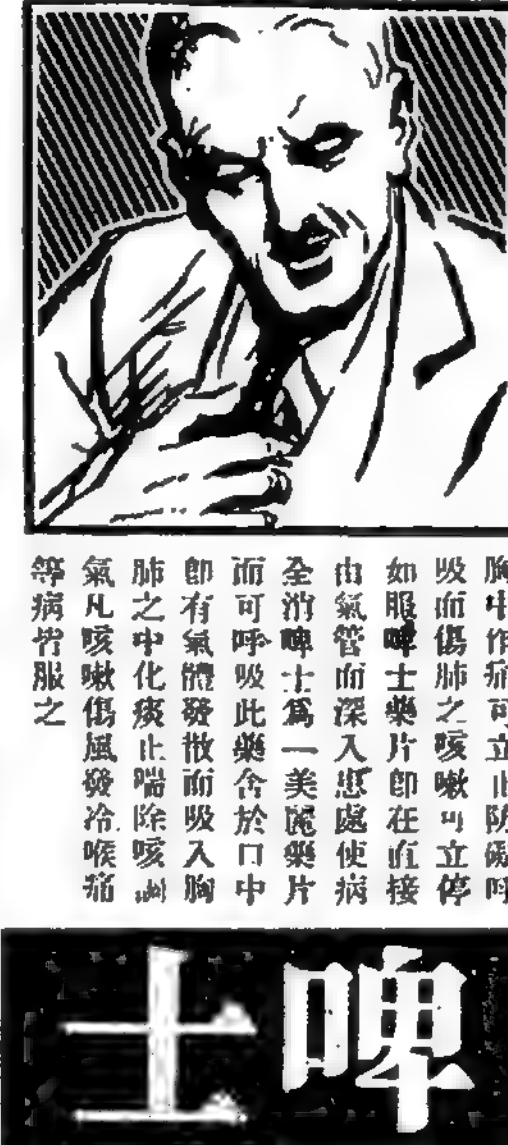 胸中作痛可立止防礙呼
吸而傷肺之咳嗽可立停
如服啤士藥片卽在直接
由氣管而深入患處使病
全消啤士爲一美麗藥片
而可呼吸此藥含於口中
卽有氣體發散而吸入胸
肺之中化痰止喘除咳調
氣凡咳嗽傷風發冷喉痛
等病皆服之
啤士